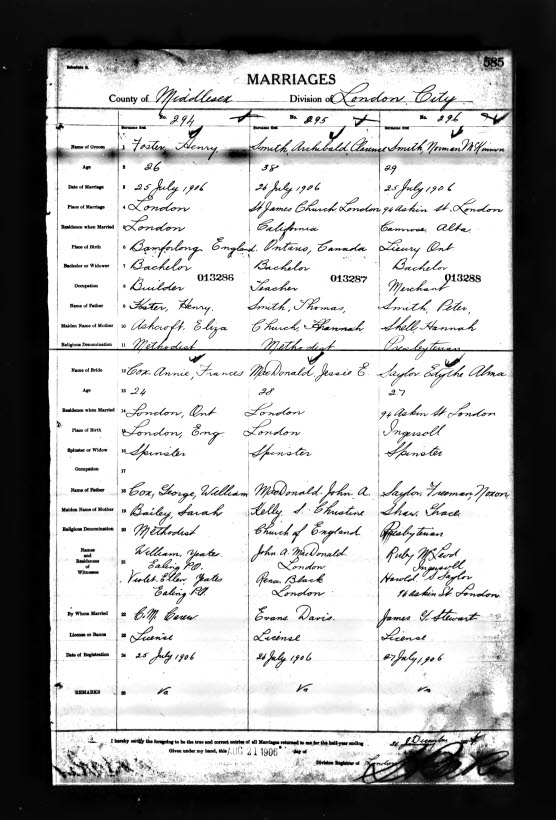 Schedule B.
585
MARRIAGES
County of Middlesex Division of London City
No. 294 No. 295 No. 296
Surname first Surname first Surname first
Name of Groom 1 Foster Henry Smith, Archibald Clarence Smith, Norman McKinnon
Age 2 26 38 29
Date of Marriage 3 25 July 1906 26 July 1906 25 July 1906
Place of Marriage 4 London St James Church London 94 Askin St. London
Residence when Married 5 London California Camrose, Alta
Place of Birth 6 England. Ontario, Canada Lieury Ont
Bachelor or Widower 7 Bachelor Bachelor Bachelor
013286 013287 013288
Occupation 8 Builder Teacher Merchant
Name of Father 9 Foster, Henry Smith, Thomas, Smith, Peter,
Maiden Name of Mother 10 Ashcroft. Eliza Church, Hannah Shell Hannah
Religious Denomination 11 Methodist Methodist Presbyterian
Name of Bride 12 Cox Annie, Frances MacDonald, Jessie E Saylor Edythe Alma
Age 13 24 28 27
Residence when Married 14 London, Ont London 94 Askin St London
Place of Birth 15 London, Eng London Ingersoll
Spinster or Widow 16 Spinster Spinster Spinster
Occupation 17
Name of Father 18 Cox, George, William MacDonald. John A. Saylor Freeman Noxon
Maiden Name of Mother 19 Bailey, Sarah Kelly S. Christine Shaw. Grace
Religious Denomination 20 Methodist Church of England Presbyterian
Names and Residences of Witnesses 21 William, Yates John A. MacDonald Ruby McLeod
Ealing P.O. London Ingersoll
Violet. Ellen, Yates Rena Black Harold S Saylor
Ealing P.O. London 94 Askin St London
By Whom Married 22 C. M. Carew Evans Davis. James G. Stewart
License or Banns 23 License License License
Date of Registration 24 25 July 1906 26 July 1906 27 July 1906
REMARKS 25
I hereby certify the foregoing to be the true and correct entries of all Marriages returned to me for the half-year ending 31 December
Given under my hand, this AUG 21 1906 day of
Division Registrar of London